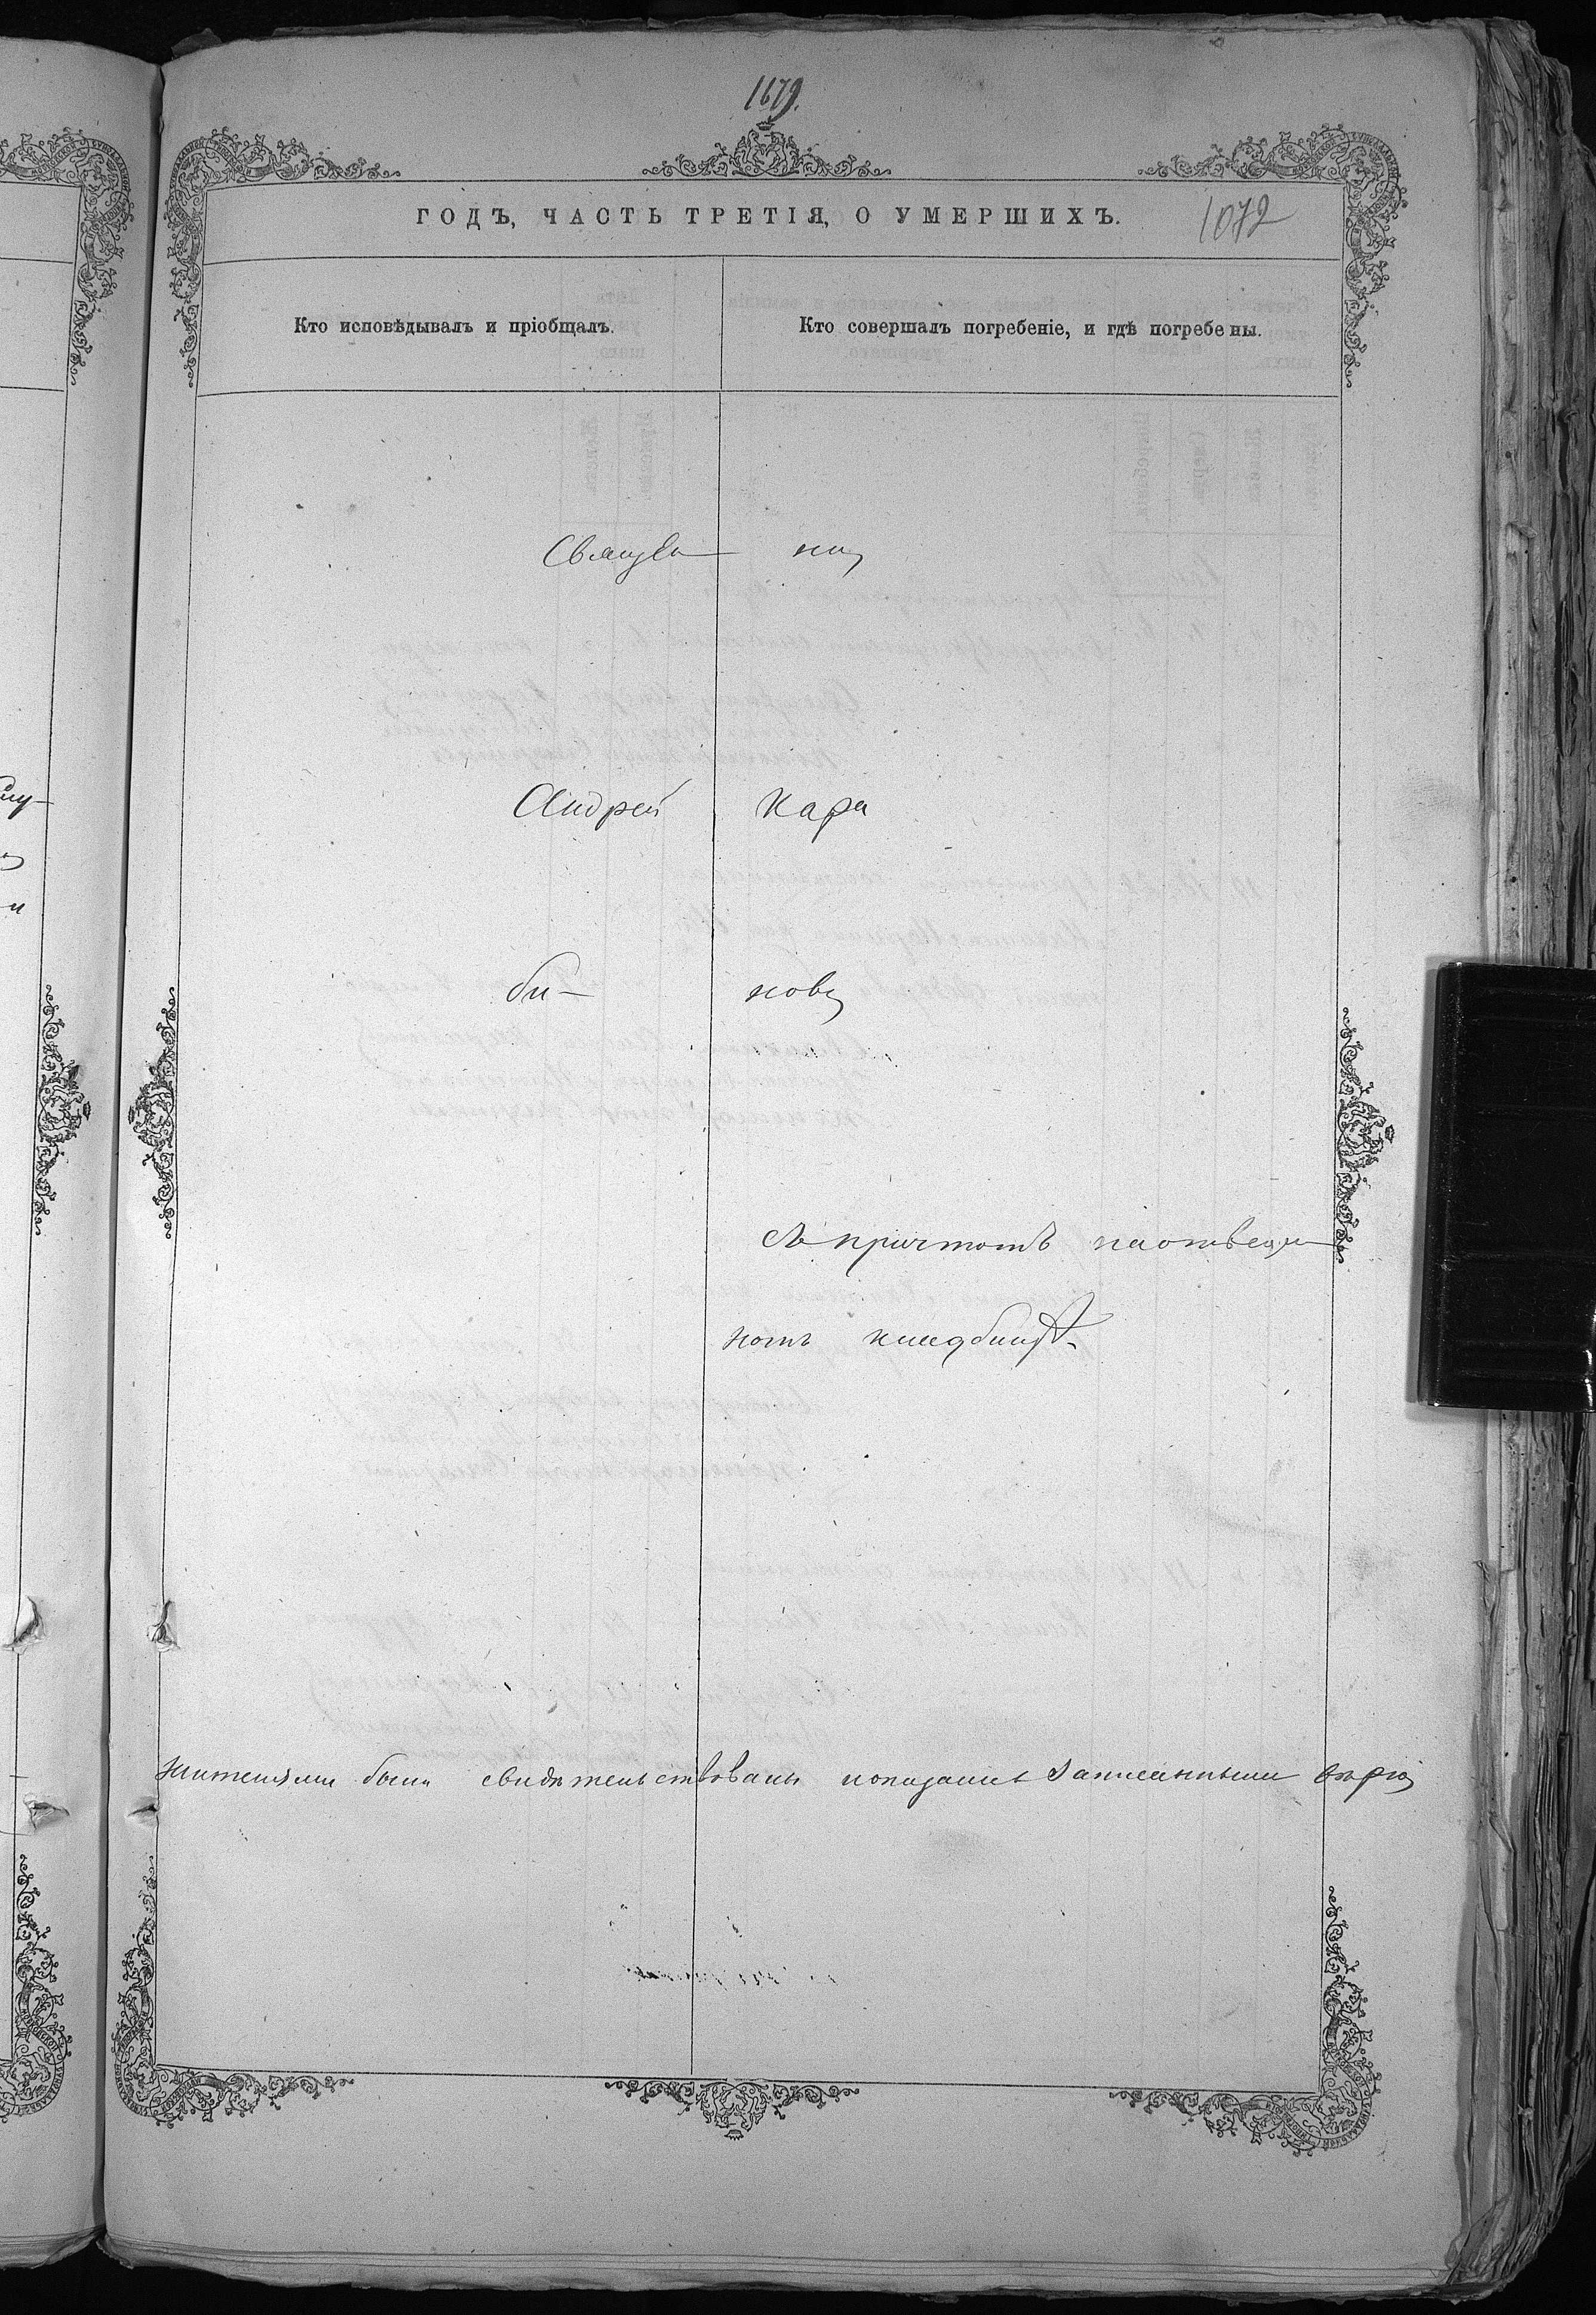 1679.
ГОДЪ, ЧАСТЬ ТРЕТІЯ, О УМЕРШИХЪ.
1072
Кто исповѣдывалъ и пріобщалъ.
Кто совершалъ погребеніе, и гдѣ погребены.
Священ— никъ
Андрей Кара
би— новъ
съ причтомъ на отведен
номъ кладбищѣ.
жителями были свидѣтельствованы и оказались записанными вѣрно